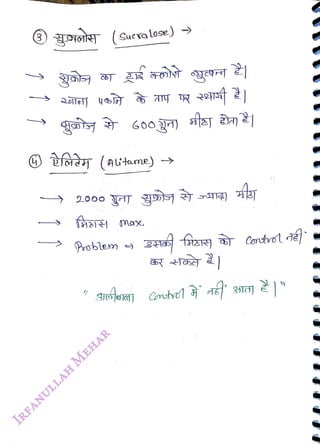 ③ सुक्रालोस (Sucralose) →
→ सुक्रोज का ट्राई क्लोरो व्युत्पन्न है|
→ खाना पकाने के ताप पर स्थायी है|
→ सुक्रोज से 600 गुना मीठा होता है|
④ ऐलिटेम (Alitame) →
→ 2000 गुना सुक्रोज से ज्यादा मीठा
→ मिठास max.
→ Problem ⇒ इसकी मिठास को Control नहीं
कर सकते है|
" आलीबाबा Control में नहीं आता है|"
IRFANULLAH MEHAR